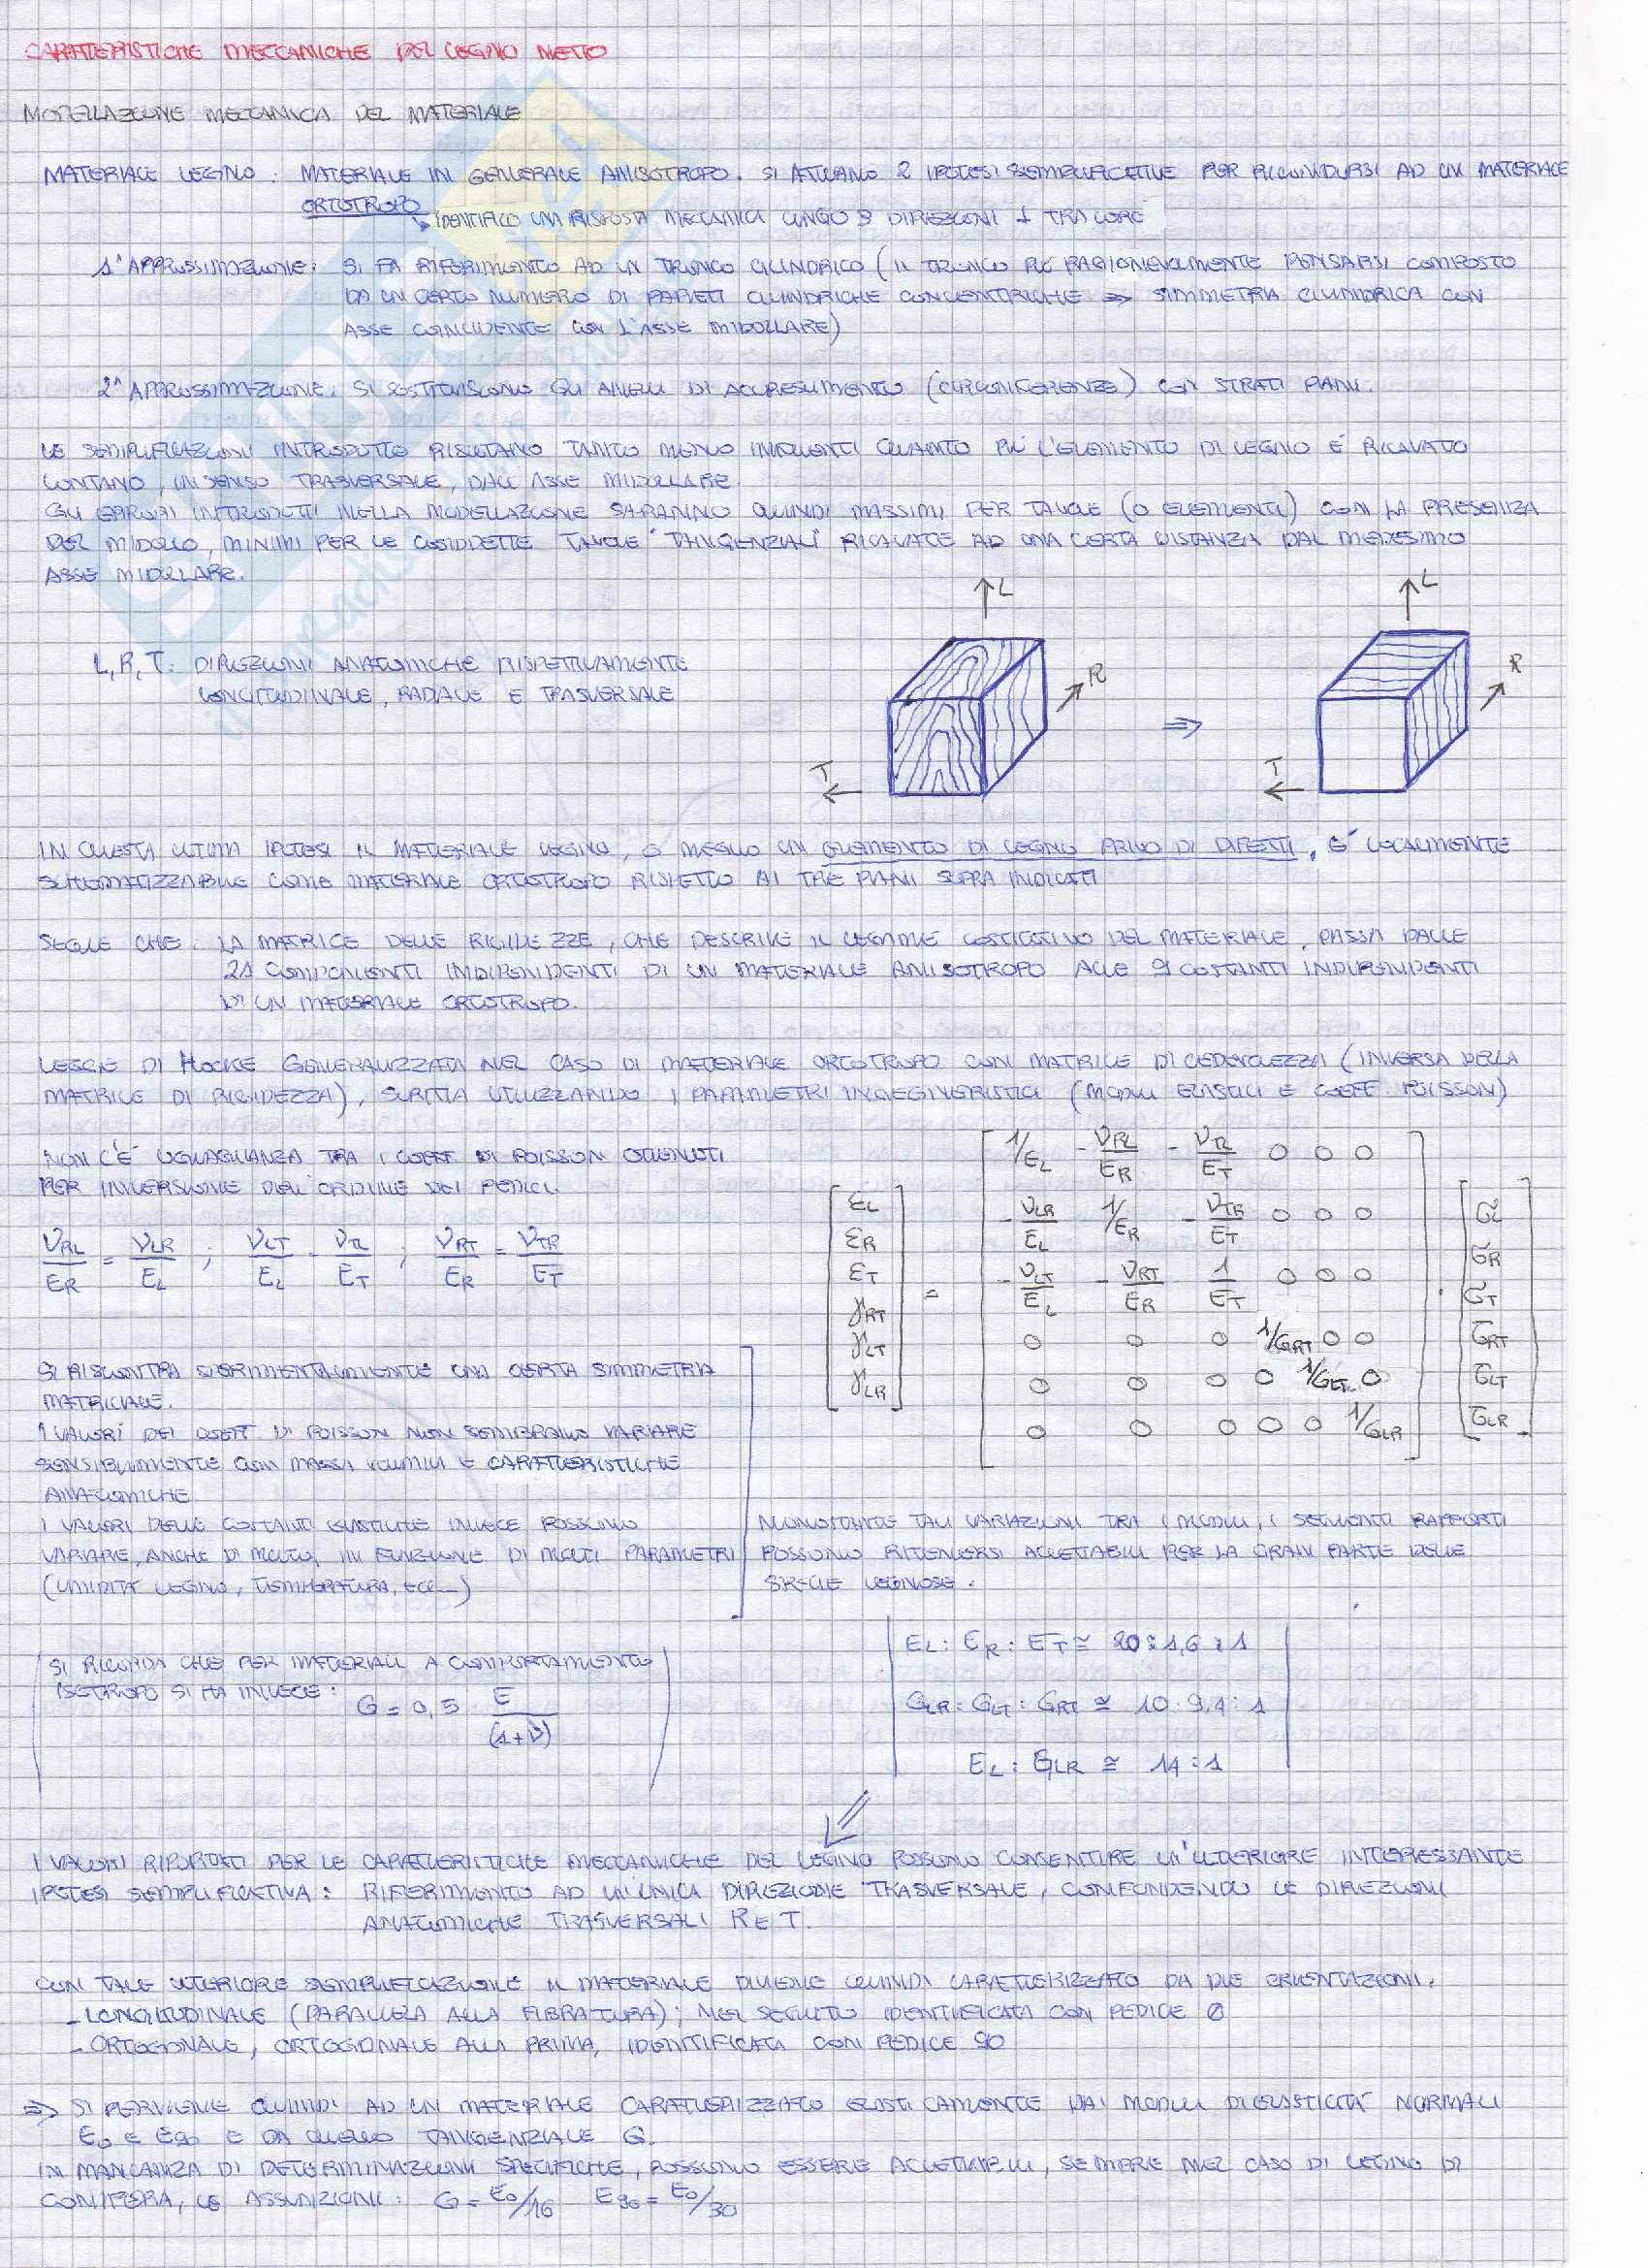 CARATTERISTICHE MECCANICHE DEL LEGNO NETTO
MODELLAZIONE MECCANICA DEL MATERIALE
MATERIALE LEGNO: MATERIALE IN GENERALE ANISOTROPO. SI ATTUANO 2 IPOTESI SEMPLIFICATIVE PER RICONDURSI AD UN MATERIALE
ORTOTROPO
IDENTIFICO UNA RISPOSTA MECCANICA LUNGO 3 DIREZIONI ⊥ TRA LORO
1^ APPROSSIMAZIONE: SI FA RIFERIMENTO AD UN TRONCO CILINDRICO (IL TRONCO PUÒ RAGIONEVOLMENTE PENSARSI COMPOSTO
DA UN CERTO NUMERO DI PARETI CILINDRICHE CONCENTRICHE ⇒ SIMMETRIA CILINDRICA CON
ASSE COINCIDENTE CON L'ASSE MIDOLLARE)
2^ APPROSSIMAZIONE: SI SOSTITUISCONO GLI ANELLI DI ACCRESCIMENTO (CIRCONFERENZE) CON STRATI PIANI.
LE SEMPLIFICAZIONI INTRODOTTE RISULTANO TANTO MENO INFLUENTI QUANTO PIÙ L'ELEMENTO DI LEGNO È RICAVATO
LONTANO, IN SENSO TRASVERSALE, DALL'ASSE MIDOLLARE.
GLI ERRORI INTRODOTTI NELLA MODELLAZIONE SARANNO QUINDI MASSIMI PER TAVOLE (O ELEMENTI) CON LA PRESENZA
DEL MIDOLLO, MINIMI PER LE COSIDDETTE TAVOLE "TANGENZIALI" RICAVATE AD UNA CERTA DISTANZA DAL MEDESIMO
ASSE MIDOLLARE.
L
L
L, R, T: DIREZIONI ANATOMICHE RISPETTIVAMENTE
LONGITUDINALE, RADIALE E TRASVERSALE
R
⇒
R
T
T
IN QUESTA ULTIMA IPOTESI IL MATERIALE LEGNO, O MEGLIO UN ELEMENTO DI LEGNO PRIVO DI DIFETTI, È LOCALMENTE
SCHEMATIZZABILE COME MATERIALE ORTOTROPO RISPETTO AI TRE PIANI SOPRA INDICATI
SEGUE CHE: LA MATRICE DELLE RIGIDEZZE, CHE DESCRIVE IL LEGAME COSTITUTIVO DEL MATERIALE, PASSA DALLE
21 COMPONENTI INDIPENDENTI DI UN MATERIALE ANISOTROPO ALLE 9 COSTANTI INDIPENDENTI
DI UN MATERIALE ORTOTROPO.
LEGGE DI HOOKE GENERALIZZATA NEL CASO DI MATERIALE ORTOTROPO CON MATRICE DI CEDEVOLEZZA (INVERSA DELLA
MATRICE DI RIGIDEZZA), SCRITTA UTILIZZANDO I PARAMETRI INGEGNERISTICI (MODULI ELASTICI E COEFF. POISSON)
NON C'È UGUAGLIANZA TRA I COEFF DI POISSON OTTENUTI
PER INVERSIONE DELL'ORDINE DEI PEDICI.
νRL/ER = νLR/EL ; νLT/EL = νTL/ET ; νRT/ER = νTR/ET
εL 1/EL -νRL/ER -νTL/ET 0 0 0 σL
εR -νLR/EL 1/ER -νTR/ET 0 0 0 σR
εT = -νLT/EL -νRT/ER 1/ET 0 0 0 · σT
γRT 0 0 0 1/GRT 0 0 τRT
γLT 0 0 0 0 1/GLT 0 τLT
γLR 0 0 0 0 0 1/GLR τLR
SI RISCONTRA SPERIMENTALMENTE UNA CERTA SIMMETRIA
MATRICIALE.
I VALORI DEI COEFF. DI POISSON NON SEMBRANO VARIARE
SENSIBILMENTE CON MASSA VOLUMICA E CARATTERISTICHE
ANATOMICHE.
I VALORI DELLE COSTANTI ELASTICHE INVECE POSSONO
VARIARE, ANCHE DI MOLTO, IN FUNZIONE DI MOLTI PARAMETRI
(UMIDITÀ LEGNO, TEMPERATURA, ECC...)
NONOSTANTE TALI VARIAZIONI TRA I MODULI, I SEGUENTI RAPPORTI
POSSONO RITENERSI ACCETTABILI PER LA GRAN PARTE DELLE
SPECIE LEGNOSE.
EL : ER : ET ≅ 20 : 1,6 : 1
GLR : GLT : GRT ≅ 10 : 9,4 : 1
EL : GLR ≅ 14 : 1
SI RICORDA CHE PER MATERIALI A COMPORTAMENTO
ISOTROPO SI HA INVECE: G = 0,5 E/(1+ν)
I VALORI RIPORTATI PER LE CARATTERISTICHE MECCANICHE DEL LEGNO POSSONO CONSENTIRE UN'ULTERIORE INTERESSANTE
IPOTESI SEMPLIFICATIVA: RIFERIMENTO AD UN'UNICA DIREZIONE TRASVERSALE, CONFONDENDO LE DIREZIONI
ANATOMICHE TRASVERSALI R E T.
CON TALE ULTERIORE SEMPLIFICAZIONE IL MATERIALE DIVIENE QUINDI CARATTERIZZATO DA DUE ORIENTAZIONI:
- LONGITUDINALE (PARALLELA ALLA FIBRATURA); NEL SEGUITO IDENTIFICATA CON PEDICE 0
- ORTOGONALE, ORTOGONALE ALLA PRIMA, IDENTIFICATA CON PEDICE 90
⇒ SI PERVIENE QUINDI AD UN MATERIALE CARATTERIZZATO ELASTICAMENTE DAI MODULI DI ELASTICITÀ NORMALI
E0 E E90 E DA QUELLO TANGENZIALE G.
IN MANCANZA DI DETERMINAZIONI SPECIFICHE, POSSONO ESSERE ACCETTABILI, SEMPRE NEL CASO DI LEGNO DI
CONIFERA, LE ASSUNZIONI: G = E0/16 E90 = E0/30